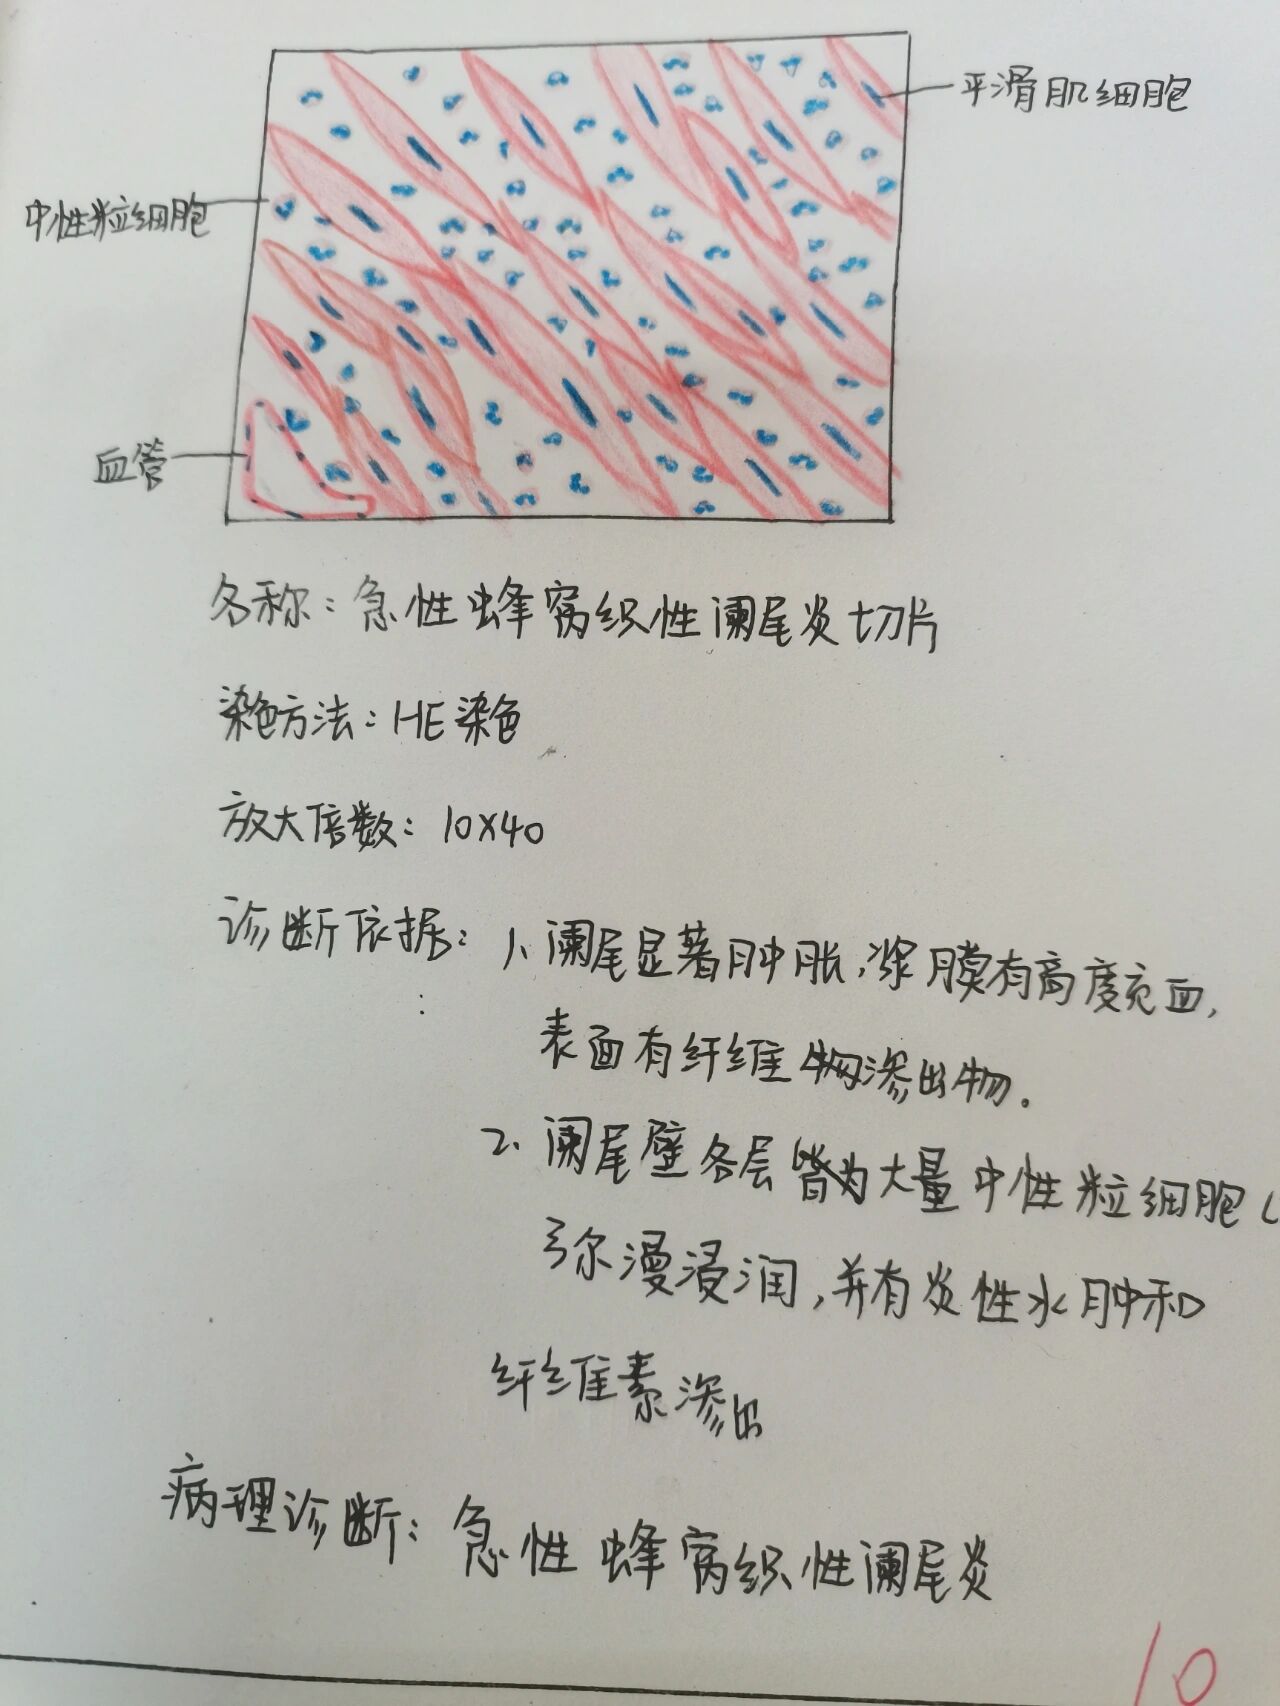 平滑肌细胞
中性粒细胞
血管
名称：急性蜂窝织性阑尾炎切片
染色方法：HE染色
放大倍数：10×40
诊断依据：1、阑尾显著肿胀，浆膜有高度充血，
表面有纤维物渗出物。
2、阑尾壁各层皆为大量中性粒细胞
弥漫浸润，并有炎性水肿和
纤维素渗出
病理诊断：急性蜂窝织性阑尾炎
10